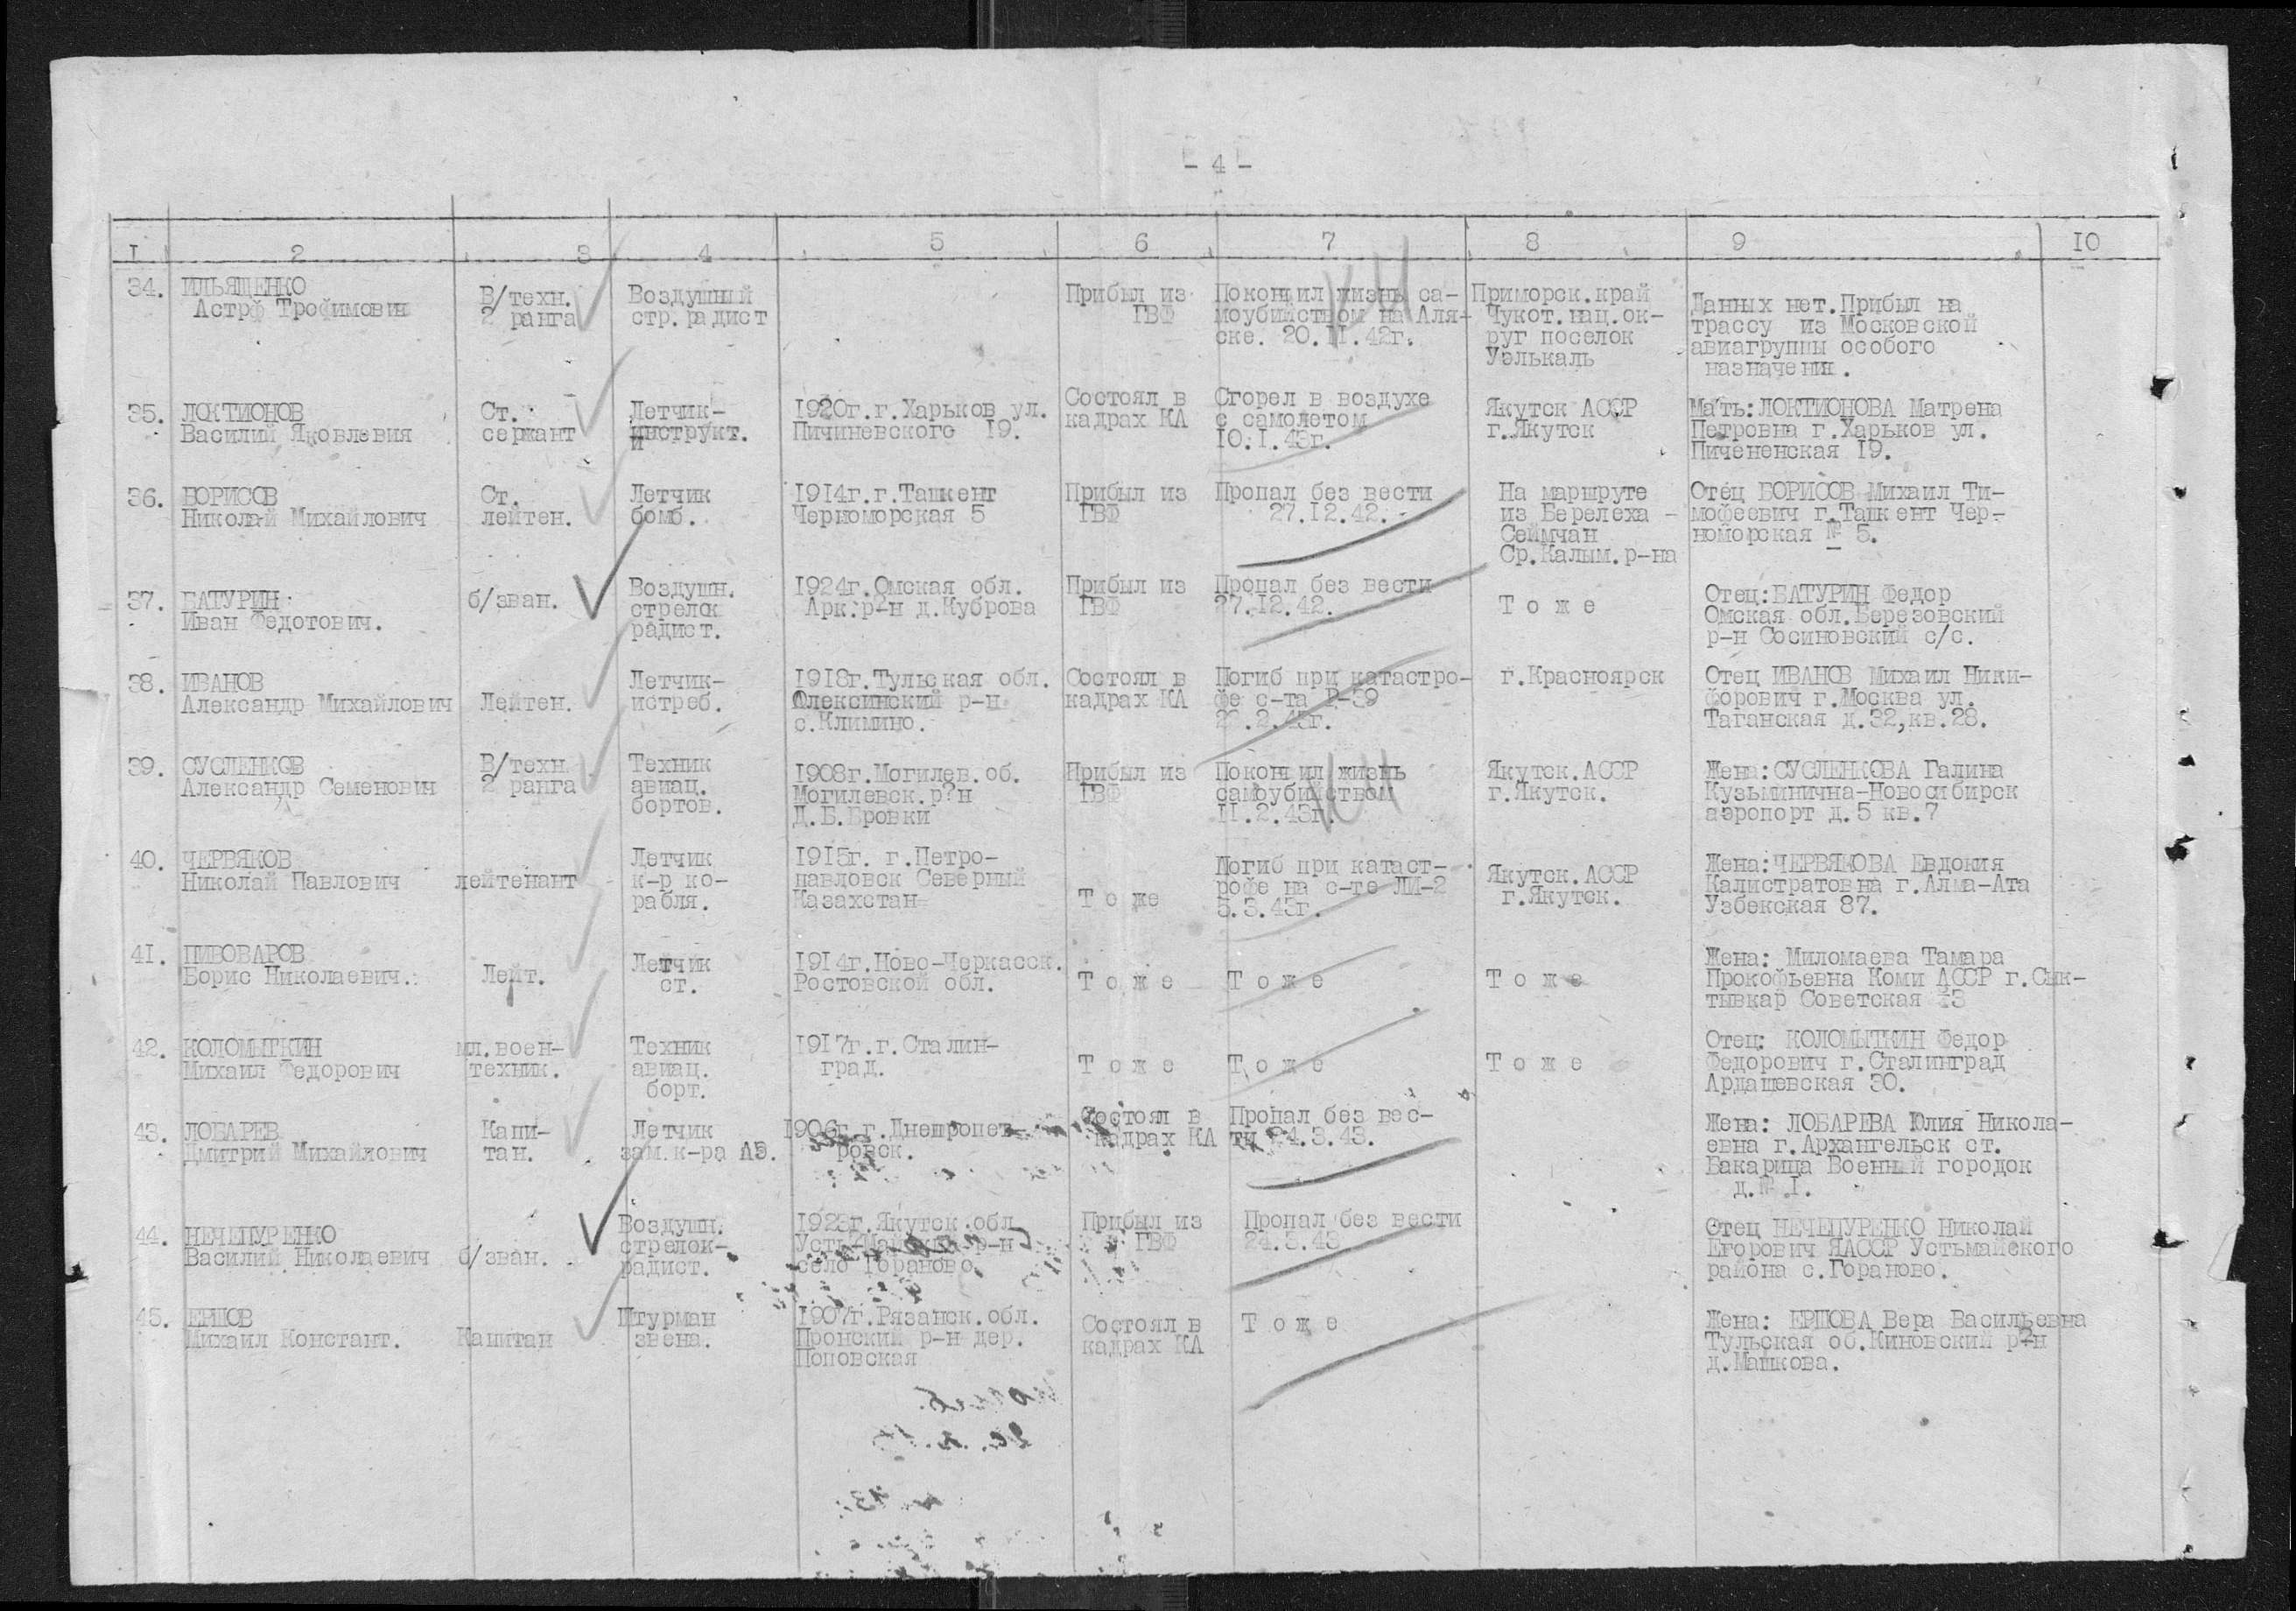 - 4 -
1 2 3 4 5 6 7 8 9 10
34. ИЛЬЯЩЕНКО
Астрф Трофимович
В/техн.
2 ранга
Воздушный
стр.радист
Прибыл из
ГВФ
Покончил жизнь са-
моубийством на Аля-
ске. 20.11.42г.
Приморск.край
Чукот.нац.ок-
руг поселок
Уэлькаль
Данных нет.Прибыл на
трассу из Московской
авиагруппы особого
назначения.
35. ЛОКТИОНОВ
Василий Яковлевия
Ст.
сержант
Летчик-
инструкт.
и
1920г.г.Харьков ул.
Пичиневского 19.
Состоял в
кадрах КА
Сгорел в воздухе
с самолетом
10.1.43г.
Якутск АССР
г.Якутск
Мать:ЛОКТИОНОВА Матрена
Петровна г.Харьков ул.
Пичененская 19.
36. БОРИСОВ
Николай Михайлович
Ст.
лейтен.
Летчик
бомб.
1914г.г.Ташкент
Черноморская 5
Прибыл из
ГВФ
Пропал без вести
27.12.42.
На маршруте
из Берелеха -
Сеймчан
Ср.Калым.р-на
Отец БОРИСОВ Михаил Ти-
мофеевич г.Ташкент Чер-
номорская № 5.
37. БАТУРИН
Иван Федотович.
б/зван.
Воздушн.
стрелок
радист.
1924г.Омская обл.
Арк.р-н д.Куброва
Прибыл из
ГВФ
Пропал без вести
27.12.42.
Т о ж е
Отец:БАТУРИН Федор
Омская обл.Березовский
р-н Сосиновский с/с.
38. ИВАНОВ
Александр Михайлович
Лейтен.
Летчик-
истреб.
1918г.Тульская обл.
Олексинский р-н
с.Климино.
Состоял в
кадрах КА
Погиб при катастро-
фе с-та Р-39
2.43г.
г.Красноярск
Отец ИВАНОВ Михаил Ники-
форович г.Москва ул.
Таганская д.32,кв.28.
39. СУСЛЕНКОВ
Александр Семенович
В/техн
2 ранга
Техник
авиац.
бортов.
1908г.Могилев.об.
Могилевск.р?н
Д.Б.Бровки
Прибыл из
ГВФ
Покончил жизнь
самоубийством
11.2.43г.
Якутск.АССР
г.Якутск.
Жена:СУСЛЕНКОВА Галина
Кузьминична-Новосибирск
аэропорт д.5 кв.7
40. ЧЕРВЯКОВ
Николай Павлович
лейтенант
Летчик
к-р ко-
рабля.
1915г. г.Петро-
павловск Северный
Казахстан
Т о же
Погиб при катаст-
рофе на с-те ЛИ-2
5.3.43г.
Якутск.АССР
г.Якутск.
Жена:ЧЕРВЯКОВА Евдокия
Калистратовна г.Алма-Ата
Узбекская 87.
41. ПИВОВАРОВ
Борис Николаевич.
Лейт.
Летчик
ст.
1914г.Ново-Черкасск.
Ростовской обл.
Т о ж е
Т о ж е
Т о ж е
Жена: Миломаева Тамара
Прокофьевна Коми АССР г.Сык-
тывкар Советская 43
42. КОЛОМЫТКИН
Михаил Федорович
мл.воен-
техник.
Техник
авиац.
борт.
1917г.г.Сталин-
град.
Т о ж е
Т о ж е
Т о ж е
Отец: КОЛОМЫТКИН Федор
Федорович г.Сталинград
Ардашевская 30.
43. ЛОБАРЕВ
Дмитрий Михайлович
Капи-
тан.
Летчик
зам.к-ра АЭ.
1906г.г.Днепропет-
ровск.
Состоял в
кадрах КА
Пропал без вес-
ти 24.3.43.
Жена: ЛОБАРЕВА Юлия Никола-
евна г.Архангельск ст.
Бакарица Военный городок
д.№ 1.
44. НЕЧЕПУРЕНКО
Василий Николаевич
б/зван.
Воздушн.
стрелок-
радист.
1923г.Якутск.обл
р-н
село Гораново
Прибыл из
ГВФ
Пропал без вести
24.3.43
Отец НЕЧЕПУРЕНКО Николай
Егорович ЯАССР Устьмайского
района с.Гораново.
45. ЕРШОВ
Михаил Констант.
Капитан
Штурман
звена.
1907г.Рязанск.обл.
Пронский р-н дер.
Поповская
Состоял в
кадрах КА
Т о ж е
Жена: ЕРШОВА Вера Васильевна
Тульская об.Киновский р-н
д.Машкова.